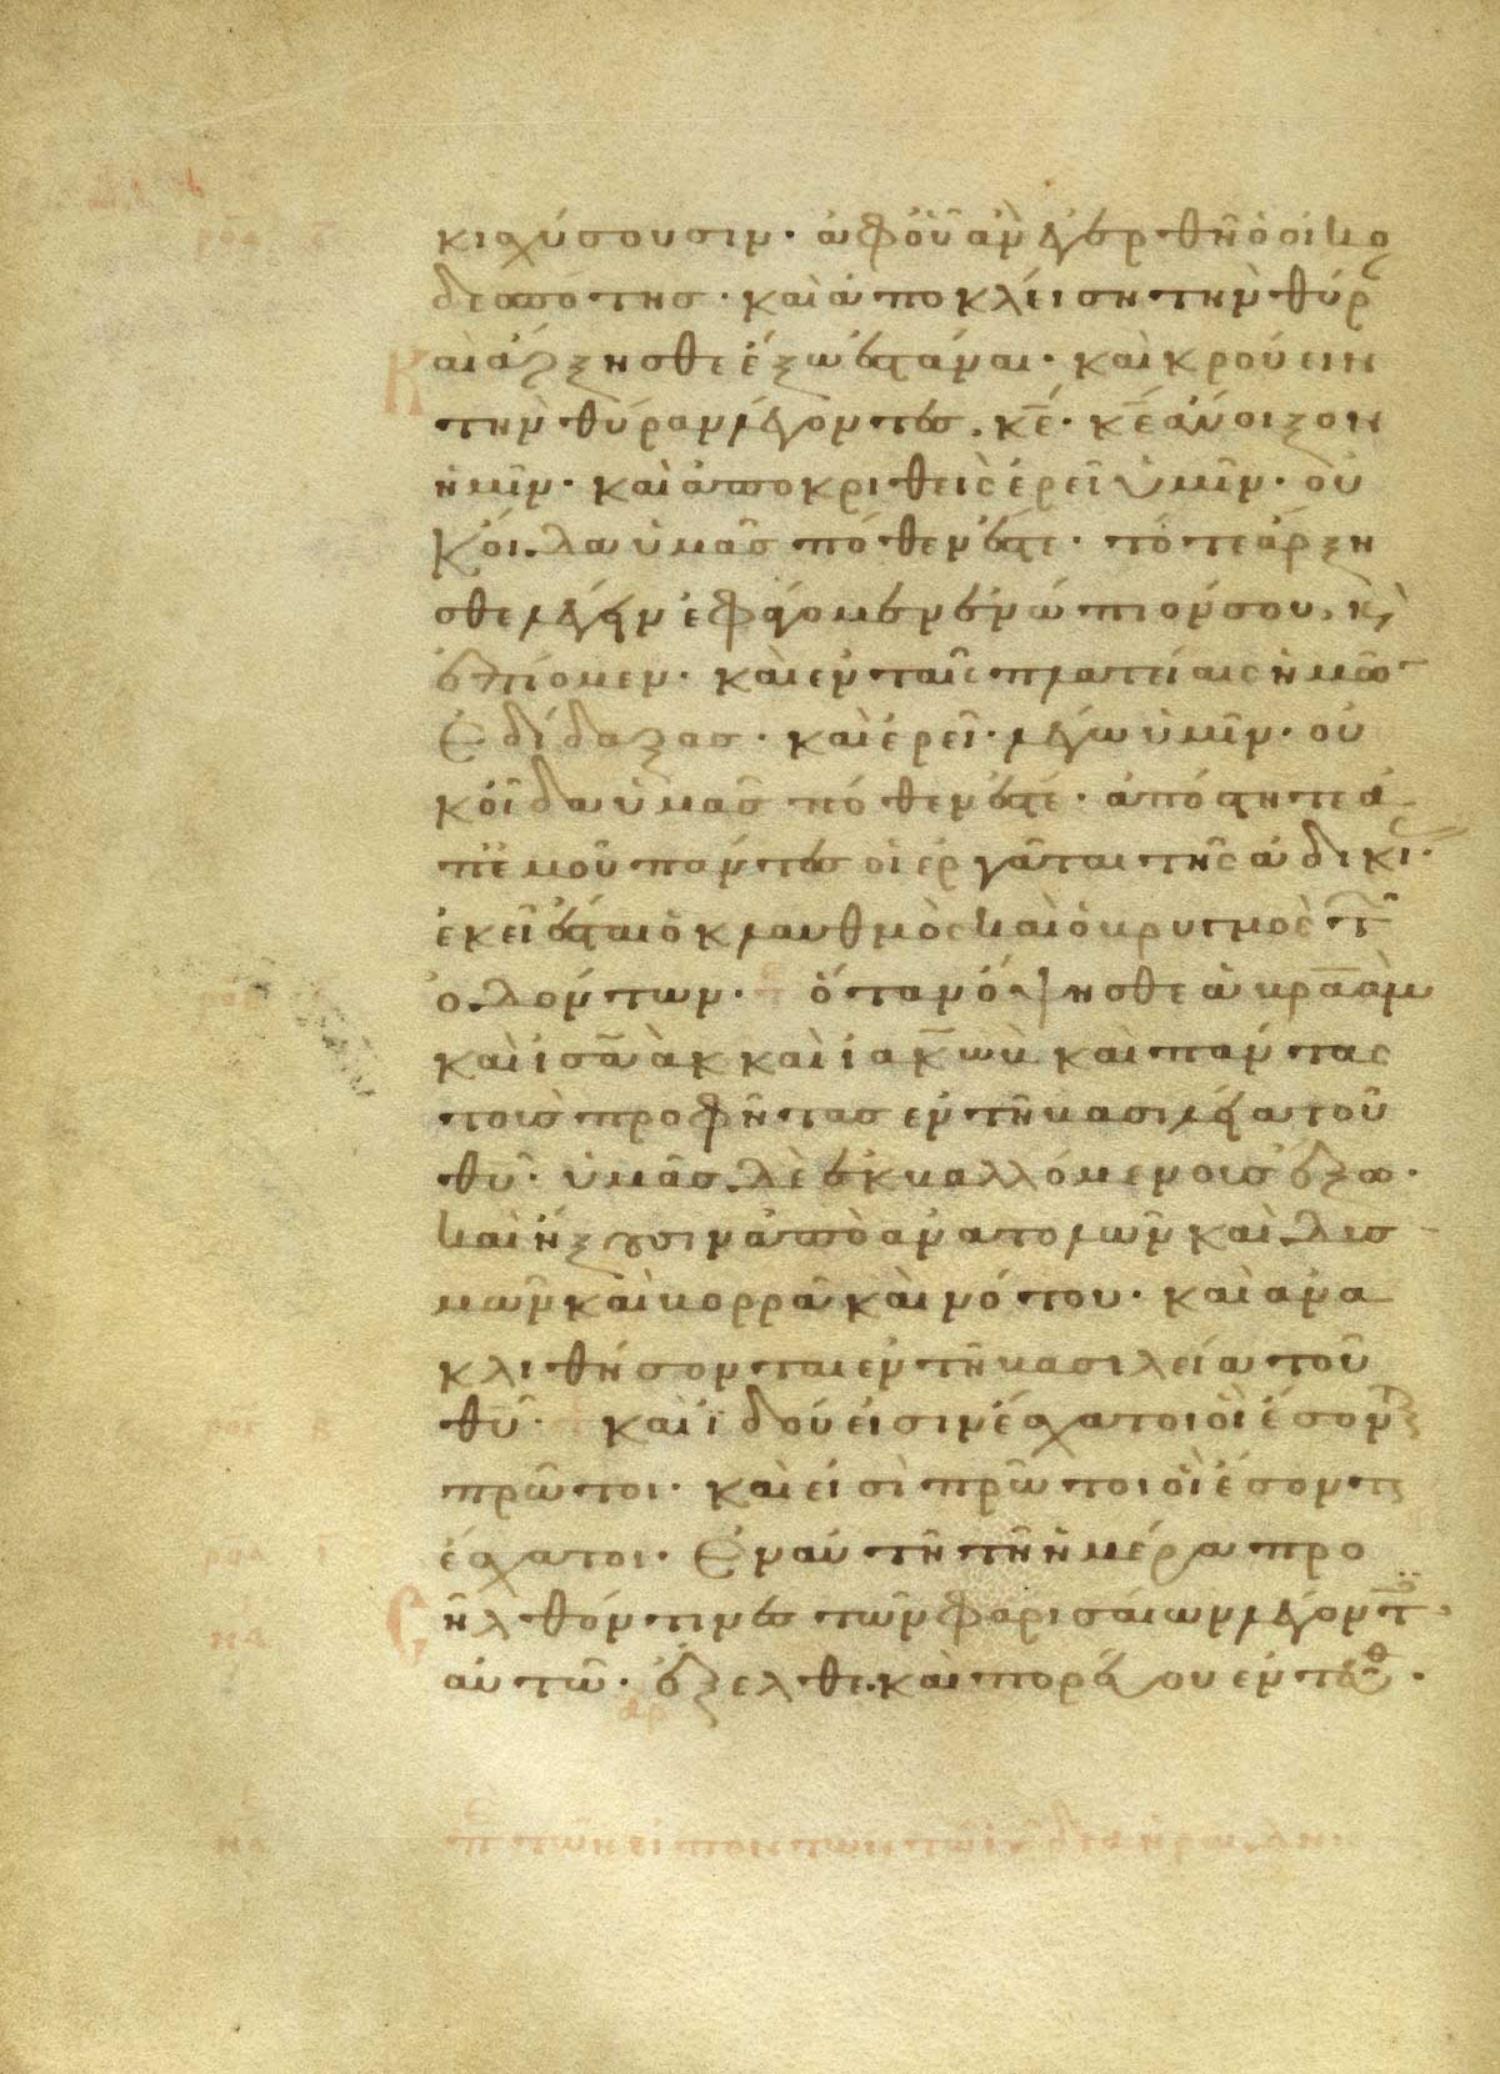 κ ισχύσουσιν· ἀφ οὗ ἂν ἐγερθῆ ὁ οἰκο
δεσπότης· καὶ ἀποκλείση τὴν θύρ
Καὶ ἄρξησθε ἔξω ἑστάναι· καὶ κρούειν
τὴν θύραν λέγοντες. κ̅ε̅· κ̅ε̅ ἄνοιξον
ἡμῖν· καὶ ἀποκριθεὶς ἐρεῖ ὑμῖν· οὐ
κ οἶδα ὑμᾶς πόθεν ἐστέ· τότε ἄρξη
σθε λέγειν ἐφάγομεν ἐνώπιόν σου, κ
ἐπίομεν· καὶ ἐν ταῖς πλατείαις ἡμῶ
ἐδίδαξας· καὶ ἐρεῖ· λέγω ὑμῖν· οὐ
κ οἶδα ὑμᾶς πόθεν ἐστέ· ἀπόστητε ἀ
π ἐμοῦ πάντες οἱ ἐργάται τῆς ἀδικί·
ἐκεῖ ἔσται ὁ κλαυθμὸς καὶ ὁ βρυγμὸς τ
ὀδόντων· ὅταν ὄψησθε ἀβραὰμ
καὶ ἰσαὰκ καὶ ἰακὼβ καὶ πάντας
τοὺς προφῆτας ἐν τῆ βασιλεία τοῦ
θ̅υ̅· ὑμᾶς δὲ ἐκβαλλομένους ἔξω·
καὶ ἥξουσιν ἀπὸ ἀνατολῶν καὶ δυσ
μῶν καὶ βορρᾶ καὶ νότου· καὶ ἀνα
κλιθήσονται ἐν τῆ βασιλεία τοῦ
θ̅υ̅· καὶ ἰδού εἰσιν ἔσχατοι οἳ ἔσοντ
πρῶτοι· καὶ εἰσὶ πρῶτοι οἳ ἔσοντ
ἔσχατοι· Ἐν αὐτῆ τῆ ἡμέρα προ
ῆλθόν τινες τῶν φαρισαίων λέγοντ
αὐτῶ· ἔξελθε καὶ πορεύου ἐντεῦθ·